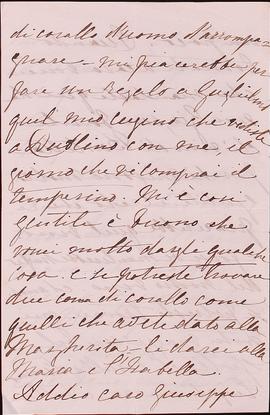 di corallo d'uomo d'accompa=
gnare - mi piacerebbe per
fare un regalo a Guglielmo
quel mio cugino che vedeste
a Dublino con me, il
giorno che vi comprai il
temperino. Mi è così
gentile è buono che
vorrei molto dargli qualche
cosa. e se potreste trovare
due corna di corallo come
quelli che avete dato alla
Margherita - li darei alla
Maria e l'Isabella.
Addio caro Giuseppe